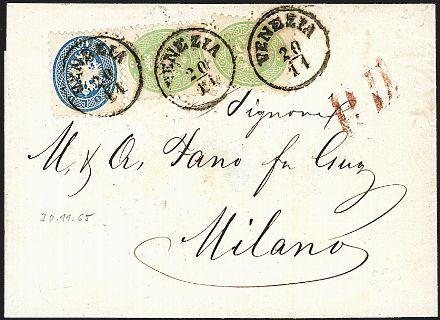 VENEZIA
20
11
VENEZIA
20
11
VENEZIA
20
11
P.D.
Signori
M. & A. Fano fu Guz
20.11.65
Milano